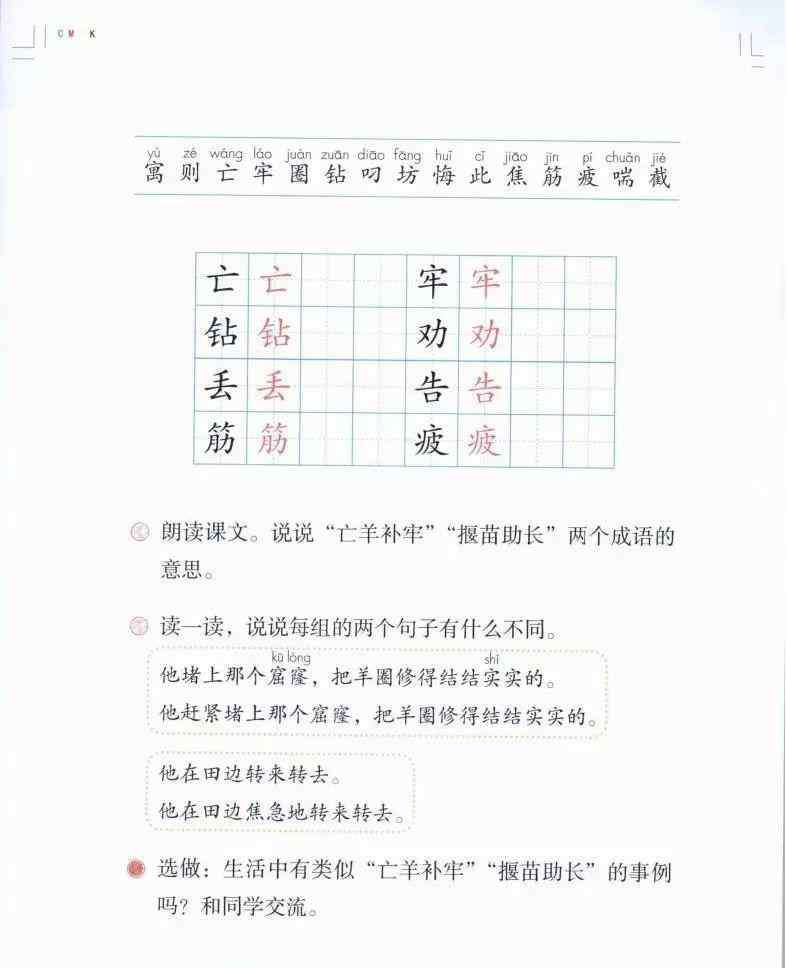 C M K
yù zé wáng láo juàn zuān diāo fāng huǐ cǐ jiāo jīn pí chuǎn jié
寓 则 亡 牢 圈 钻 叼 坊 悔 此 焦 筋 疲 喘 截
亡 亡 牢 牢
钻 钻 劝 劝
丢 丢 告 告
筋 筋 疲 疲
朗读课文。说说“亡羊补牢”“揠苗助长”两个成语的
意思。
读一读，说说每组的两个句子有什么不同。
kū lóng shí
他堵上那个窟窿，把羊圈修得结结实实的。
他赶紧堵上那个窟窿，把羊圈修得结结实实的。
他在田边转来转去。
他在田边焦急地转来转去。
选做：生活中有类似“亡羊补牢”“揠苗助长”的事例
吗？和同学交流。